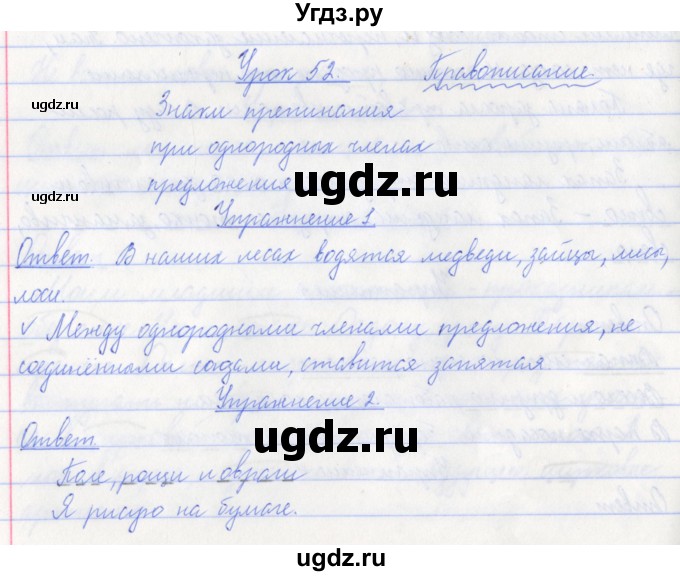 Угдз.ру
Урок 52. Правописание.
ugdz.ru Знаки препинания ugdz.ru
при однородных членах
ugdz.ru предложения ugdz.ru ugdz.ru
Упражнение 1.
Ответ. В наших лесах водятся медведи, зайцы, лисы,
лоси.
✓ Между однородными членами предложения, не
соединёнными союзами, ставится запятая
Упражнение 2.
Ответ ugdz.ru
Поле, рощи и овраги
Я рисую на бумаге.
ugdz.ru ugdz.ru
ugdz.ru